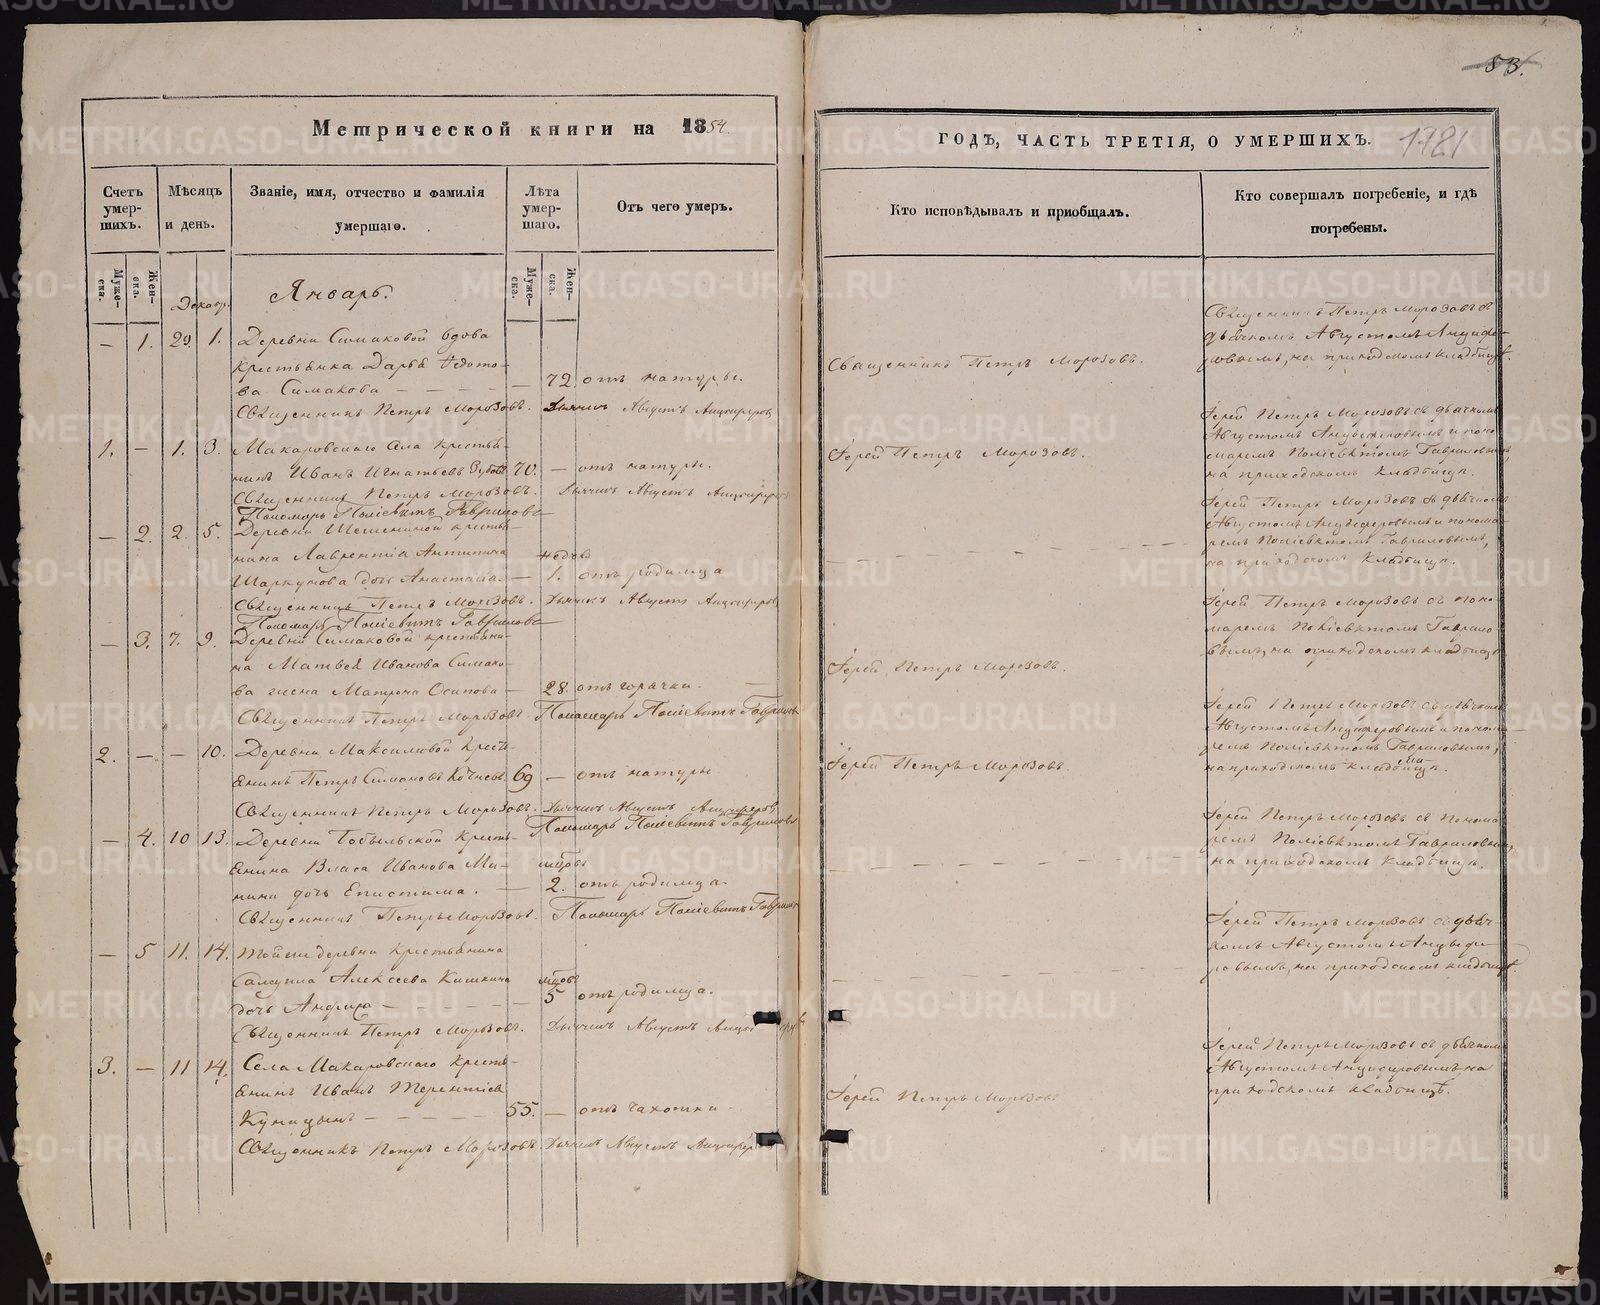 53.
1781
Метрической книги на 1854.
ГОДЪ, ЧАСТЬ ТРЕТІЯ, О УМЕРШИХЪ.
Счетъ умер- шихъ.
Мѣсяцъ и день.
Званіе, имя, отчество и фамилія умершаго.
Лѣта умер- шаго.
Отъ чего умеръ.
Кто исповѣдывалъ и пріобщалъ.
Кто совершалъ погребеніе, и гдѣ погребены.
Муже- ска.
Жен- ска.
Муже- ска.
Жен- ска.
Январь.
— 1. 29. 1. Деревни Симаковой вдова
крестьянка Дарья Ѳедото-
ва Симакова — 72. отъ натуры.
Священникъ Петръ Морозовъ. Дьячекъ Августъ Анциферовъ
Священникъ Петръ Морозовъ.
Священникъ Петръ Морозовъ съ
дьячкомъ Августомъ Анцифе-
ровымъ, на приходскомъ кладбищѣ.
1. — 1. 3. Макаровскаго села крестья-
нинъ Иванъ Игнатьевъ 70. — отъ натуры.
Священникъ Петръ Морозовъ. Дьячекъ Августъ Анциферовъ
Пономарь Полієвктъ Гавриловъ
Іерей Петръ Морозовъ.
Іерей Петръ Морозовъ съ дьячкомъ
Августомъ Анциферовымъ и поно-
маремъ Поліевктомъ Гавриловымъ,
на приходскомъ кладбищѣ.
— 2. 2. 5. Деревни крестья-
нина Лаврентія Антипина
дочь Анастасія — 1. отъ родимца
Священникъ Петръ Морозовъ. Дьячекъ Августъ Анциферовъ
Пономарь Поліевктъ Гавриловъ
Іерей Петръ Морозовъ съ дьячкомъ
Августомъ Анциферовымъ и понома-
ремъ Поліевктомъ Гавриловымъ,
на приходскомъ кладбищѣ.
— 3. 7. 9. Деревни Симаковой крестьяни-
на Матвея Иванова Симако-
ва жена Матрона Осипова — 28. отъ горячки.
Священникъ Петръ Морозовъ. Пономарь Поліевктъ Гавриловъ
Іерей Петръ Морозовъ.
Іерей Петръ Морозовъ съ поно-
маремъ Поліевктомъ Гаврило-
вымъ, на приходскомъ кладбищѣ
2. — — 10. Деревни Максимовой крест-
янинъ Петръ Симоновъ 69 — отъ натуры
Священникъ Петръ Морозовъ. Дьячекъ Августъ Анциферовъ
Пономарь Поліевктъ Гавриловъ
Іерей Петръ Морозовъ.
Іерей Петръ Морозовъ съ дьячкомъ
Августомъ Анциферовымъ и понома-
ремъ Поліевктомъ Гавриловымъ,
на приходскомъ кладбищѣ.
— 4. 10 13. Деревни крестья-
янина Власа Иванова Ми-
нина дочь Епистима. — 2. отъ родимца.
Священникъ Петръ Морозовъ. Пономарь Поліевктъ Гавриловъ
Іерей Петръ Морозовъ съ понома-
ремъ Поліевктомъ Гавриловымъ,
на приходскомъ кладбищѣ.
— 5 11. 14. Тойже деревни крестьянина
Самуила Алексеева Кишкина
дочь — 5 отъ родимца.
Священникъ Петръ Морозовъ. Дьячекъ Августъ
Іерей Петръ Морозовъ съ дьяч-
комъ Августомъ Анцыфе-
ровымъ, на приходскомъ кладбищѣ.
3. — 11 14. Села Макаровскаго крест-
янинъ Иванъ Терентіевъ
Куницынъ — 55. — отъ чахотки
Священникъ Петръ Морозовъ. Дьячекъ Августъ Анциферовъ
Іерей Петръ Морозовъ
Іерей Петръ Морозовъ съ дьячкомъ
Августомъ Анциферовымъ на
приходскомъ кладбищѣ.
METRIKI.GASO-URAL.RU